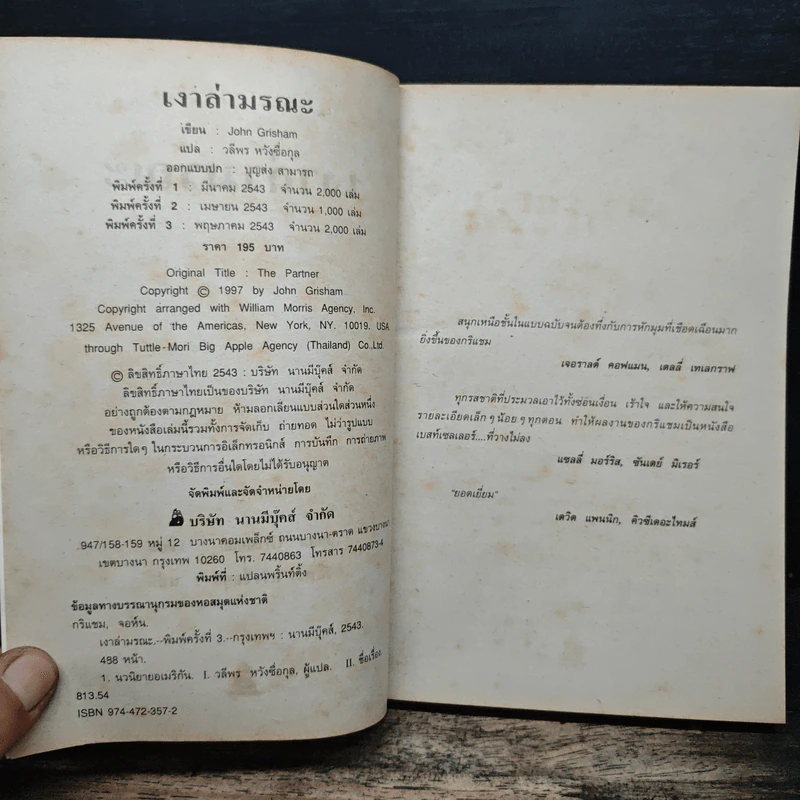 เงาล่ามรณะ
เขียน : John Grisham
แปล : วลีพร หวังซื่อกุล
ออกแบบปก : บุญส่ง สามารถ
พิมพ์ครั้งที่ 1 : มีนาคม 2543 จำนวน 2,000 เล่ม
พิมพ์ครั้งที่ 2 : เมษายน 2543 จำนวน 1,000 เล่ม
พิมพ์ครั้งที่ 3 : พฤษภาคม 2543 จำนวน 2,000 เล่ม
ราคา 195 บาท
Original Title : The Partner
Copyright © 1997 by John Grisham
Copyright arranged with William Morris Agency, Inc.
1325 Avenue of the Americas, New York, NY. 10019. USA
through Tuttle-Mori Big Apple Agency (Thailand) Co.,Ltd.
© ลิขสิทธิ์ภาษาไทย 2543 : บริษัท นานมีบุ๊คส์ จำกัด
ลิขสิทธิ์ภาษาไทยเป็นของบริษัท นานมีบุ๊คส์ จำกัด
อย่างถูกต้องตามกฎหมาย ห้ามลอกเลียนแบบส่วนใดส่วนหนึ่ง
ของหนังสือเล่มนี้รวมทั้งการจัดเก็บ ถ่ายทอด ไม่ว่ารูปแบบ
หรือวิธีการใดๆ ในกระบวนการอิเล็กทรอนิกส์ การบันทึก การถ่ายภาพ
หรือวิธีการอื่นใดโดยไม่ได้รับอนุญาต
จัดพิมพ์และจัดจำหน่ายโดย
บริษัท นานมีบุ๊คส์ จำกัด
947/158-159 หมู่ 12 บางนาคอมเพล็กซ์ ถนนบางนา-ตราด แขวงบางนา
เขตบางนา กรุงเทพ 10260 โทร. 7440863 โทรสาร 7440873-4
พิมพ์ที่ : แปลนพริ้นท์ติ้ง
ข้อมูลทางบรรณานุกรมของหอสมุดแห่งชาติ
กริแชม, จอห์น.
เงาล่ามรณะ.--พิมพ์ครั้งที่ 3.--กรุงเทพฯ : นานมีบุ๊คส์, 2543.
488 หน้า.
1. นวนิยายอเมริกัน. I. วลีพร หวังซื่อกุล, ผู้แปล. II. ชื่อเรื่อง
813.54
ISBN 974-472-357-2
สนุกเหนือชั้นในแบบฉบับจนต้องทึ่งกับการหักมุมที่เชือดเฉือนมาก
ยิ่งขึ้นของกริแชม
เจอราลด์ คอฟแมน, เดลลี่ เทเลกราฟ
ทุกรสชาติที่ประมวลเอาไว้ทั้งซ่อนเงื่อน เร้าใจ และให้ความสนใจ
รายละเอียดเล็กๆ น้อยๆ ทุกตอน ทำให้ผลงานของกริแชมเป็นหนังสือ
เบสท์เซลเลอร์....ที่วางไม่ลง
แซลลี่ มอร์ริส, ซันเดย์ มิเรอร์
"ยอดเยี่ยม"
เดวิด แพนนิก, คิวซีเดอะไทมส์